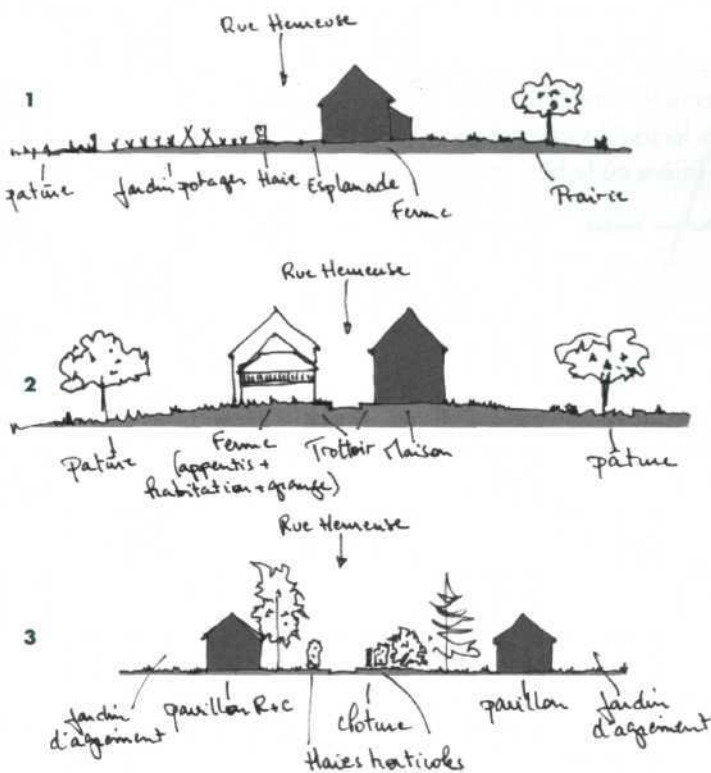 Rue Hemeuse
1
pature
Jardin potager
Haie
Esplanade
Ferme
Prairie
Rue Hemeuse
2
Pature
Ferme
(appentis +
habitation + grange)
Trottoir
Maison
pâture
Rue Hemeuse
3
Jardin
d'agrément
pavillon R+C
Haies horticoles
cloture
pavillon
Jardin
d'agrément